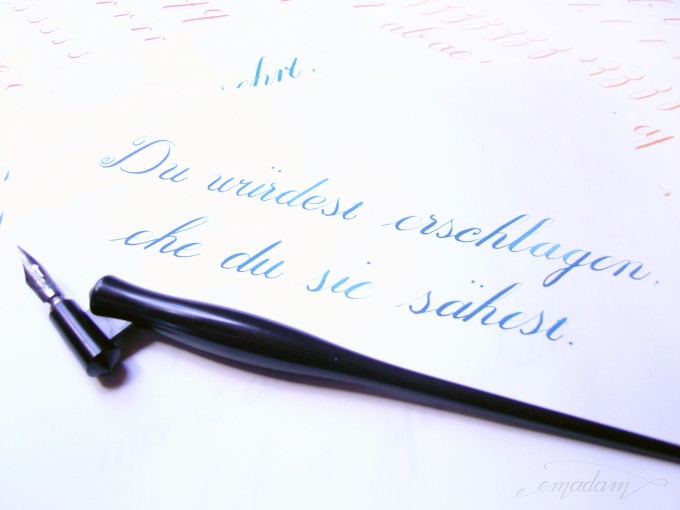 abae
Du würdest erschlagen,
ehe du sie sähest.
emadam